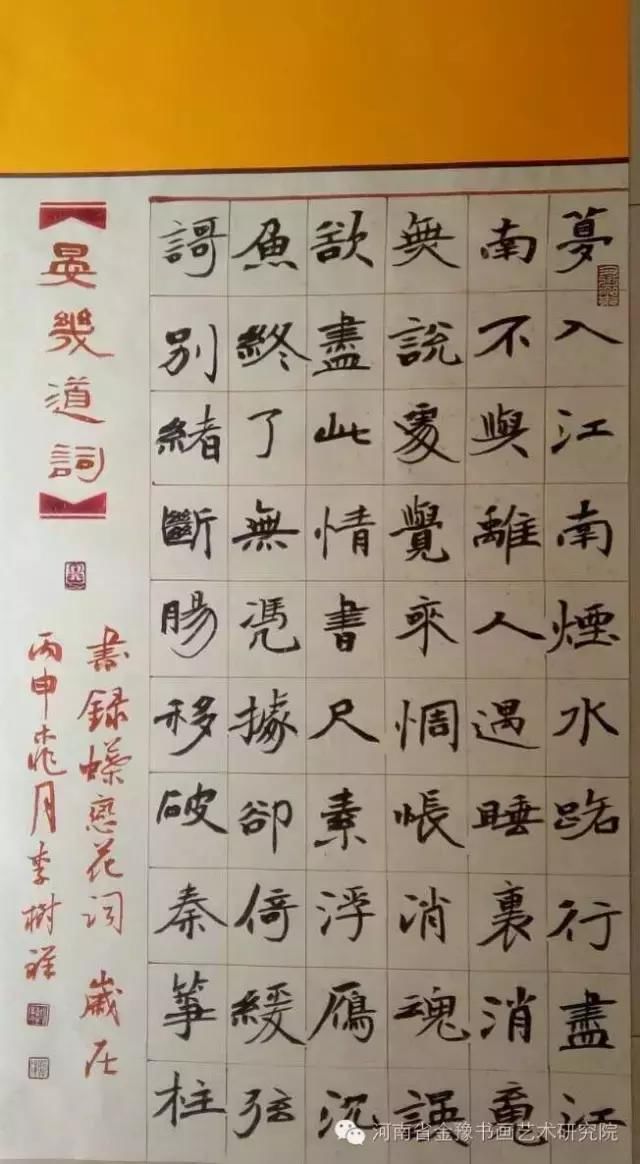 夢入江南煙水路行盡江
南不與離人遇睡裏消
無說處覺來惆悵消魂誤
欲盡此情書尺素浮鴈沉
魚終了無憑據卻倚緩弦
謌別緒斷腸移破秦箏柱
晏幾道詞
书録蝶戀花词 歲在
丙申桃月李樹祥
河南省金豫书画艺术研究院